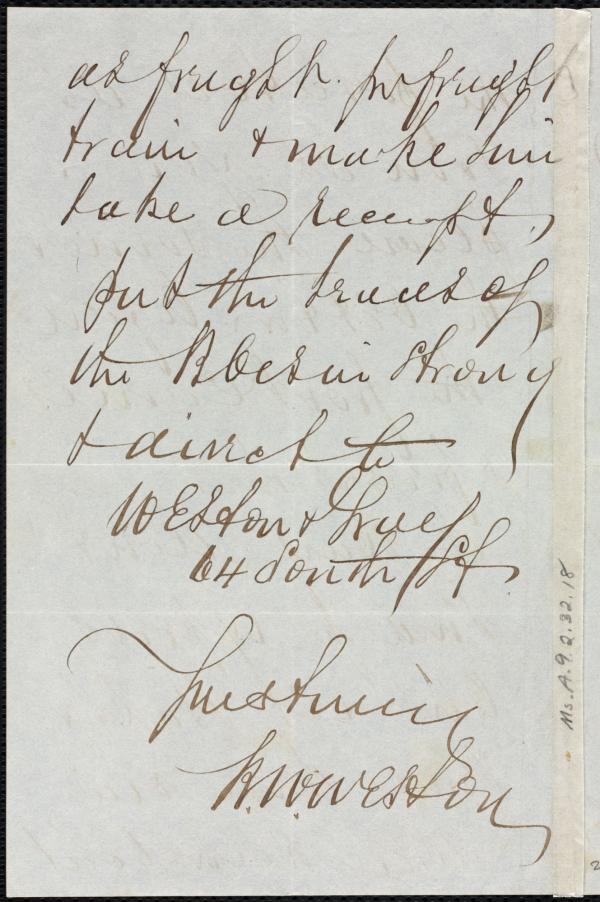 as freight. per freight
train & make him
take a receipt,
put the traces of
the in strong
& direct to
Weston & Gray
64 South St.
Yours truly
Weston
Ms. A. 9. 2. 32. 18